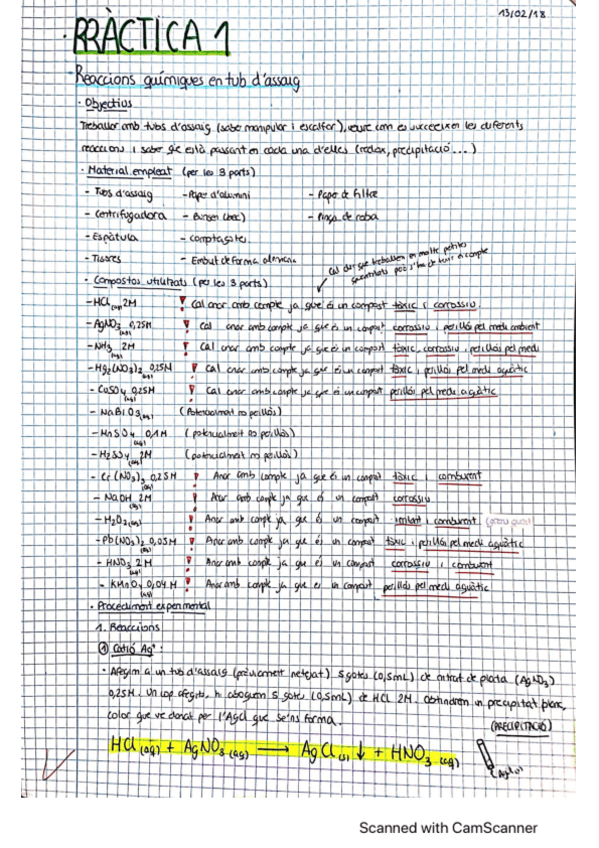 13/02/18
PRÀCTICA 1
Reaccions químiques en tub d'assaig
· Objectius
Treballar amb tubs d'assaig (saber manipular i escalfar), veure com es succeeixen les diferents
reaccions i saber què està passant en cada una d'elles (redox, precipitació...)
· Material emprat (per les 3 parts)
- Tubs d'assaig - Paper d'alumini - Paper de filtre
- Centrifugadora - Bunsen (bec) - Pinça de roba
- Espàtula - comptagotes
- Tisores - Embut de forma alemana
Cal dir que treballem en molt petites
quantitats però s'ha de tenir en compte
· Compostos utilitzats (per les 3 parts)
- HCl (aq) 2M ! Cal anar amb compte ja que és un compost tòxic i corrossiu.
- AgNO3 (aq) 0,25M ! Cal anar amb compte ja que és un compost corrossiu i perillós pel medi ambient
- NH3 (aq) 2M ! Cal anar amb compte ja que és un compost tòxic, corrossiu i perillós pel medi
- Hg2(NO3)2 (aq) 0,25M ! Cal anar amb compte ja que és un compost tòxic i perillós pel medi aquàtic
- CuSO4 (aq) 0,25M ! Cal anar amb compte ja que és un compost perillós pel medi aquàtic
- NaBiO3 (aq) (Potencialment no perillós)
- MnSO4 (aq) 0,1M (potencialment no perillós)
- H2SO4 (aq) 2M (potencialment no perillós)
- Cr(NO3)3 (aq) 0,25M ! Anar amb compte ja que és un compost tòxic i comburent
- NaOH (aq) 2M ! Anar amb compte ja que és un compost corrossiu
- H2O2 (aq) ! Anar amb compte ja que és un compost irritant i comburent
- Pb(NO3)2 (aq) 0,05M ! Anar amb compte ja que és un compost tòxic i perillós pel medi aquàtic
- HNO3 (aq) 2M ! Anar amb compte ja que és un compost corrossiu i comburent
- KMnO4 (aq) 0,04M ! Anar amb compte ja que és un compost perillós pel medi aquàtic
· Procediment experimental
1. Reaccions
① Catió Ag+:
· Afegim a un tub d'assaig (prèviament netejat) 5 gotes (0,5mL) de nitrat de plata (AgNO3)
0,25M. Un cop afegits, hi aboquem 5 gotes (0,5mL) de HCl 2M. Obtindrem un precipitat blanc,
color que ve donat per l'AgCl que se'ns forma.
(PRECIPITACIÓ)
HCl (aq) + AgNO3 (aq) → AgCl (s) ↓ + HNO3 (aq)
(AgCl(s))
Scanned with CamScanner